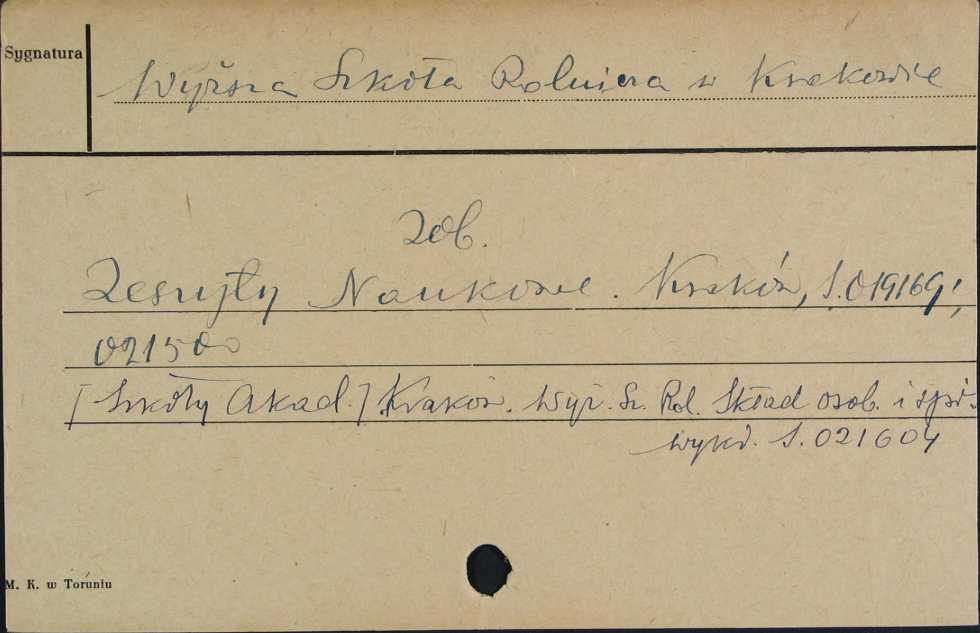 Sygnatura
Wyższa Szkoła Rolnicza w Krakowie
zob.
Zeszyty Naukowe. Kraków, S. 019169,
021500
[Szkoły Akad.] Kraków. Wyż. Sz. Rol. Skład osob. i spis
wykł. S. 021604
M. K. w Toruniu